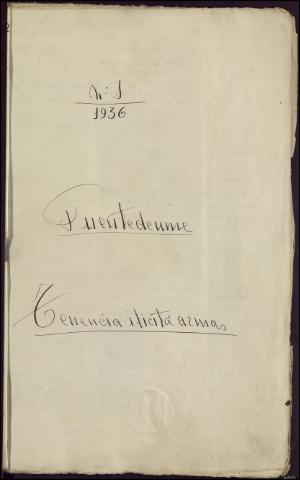 Nº 1
1936
Puentedeume
Tenencia ilicita armas